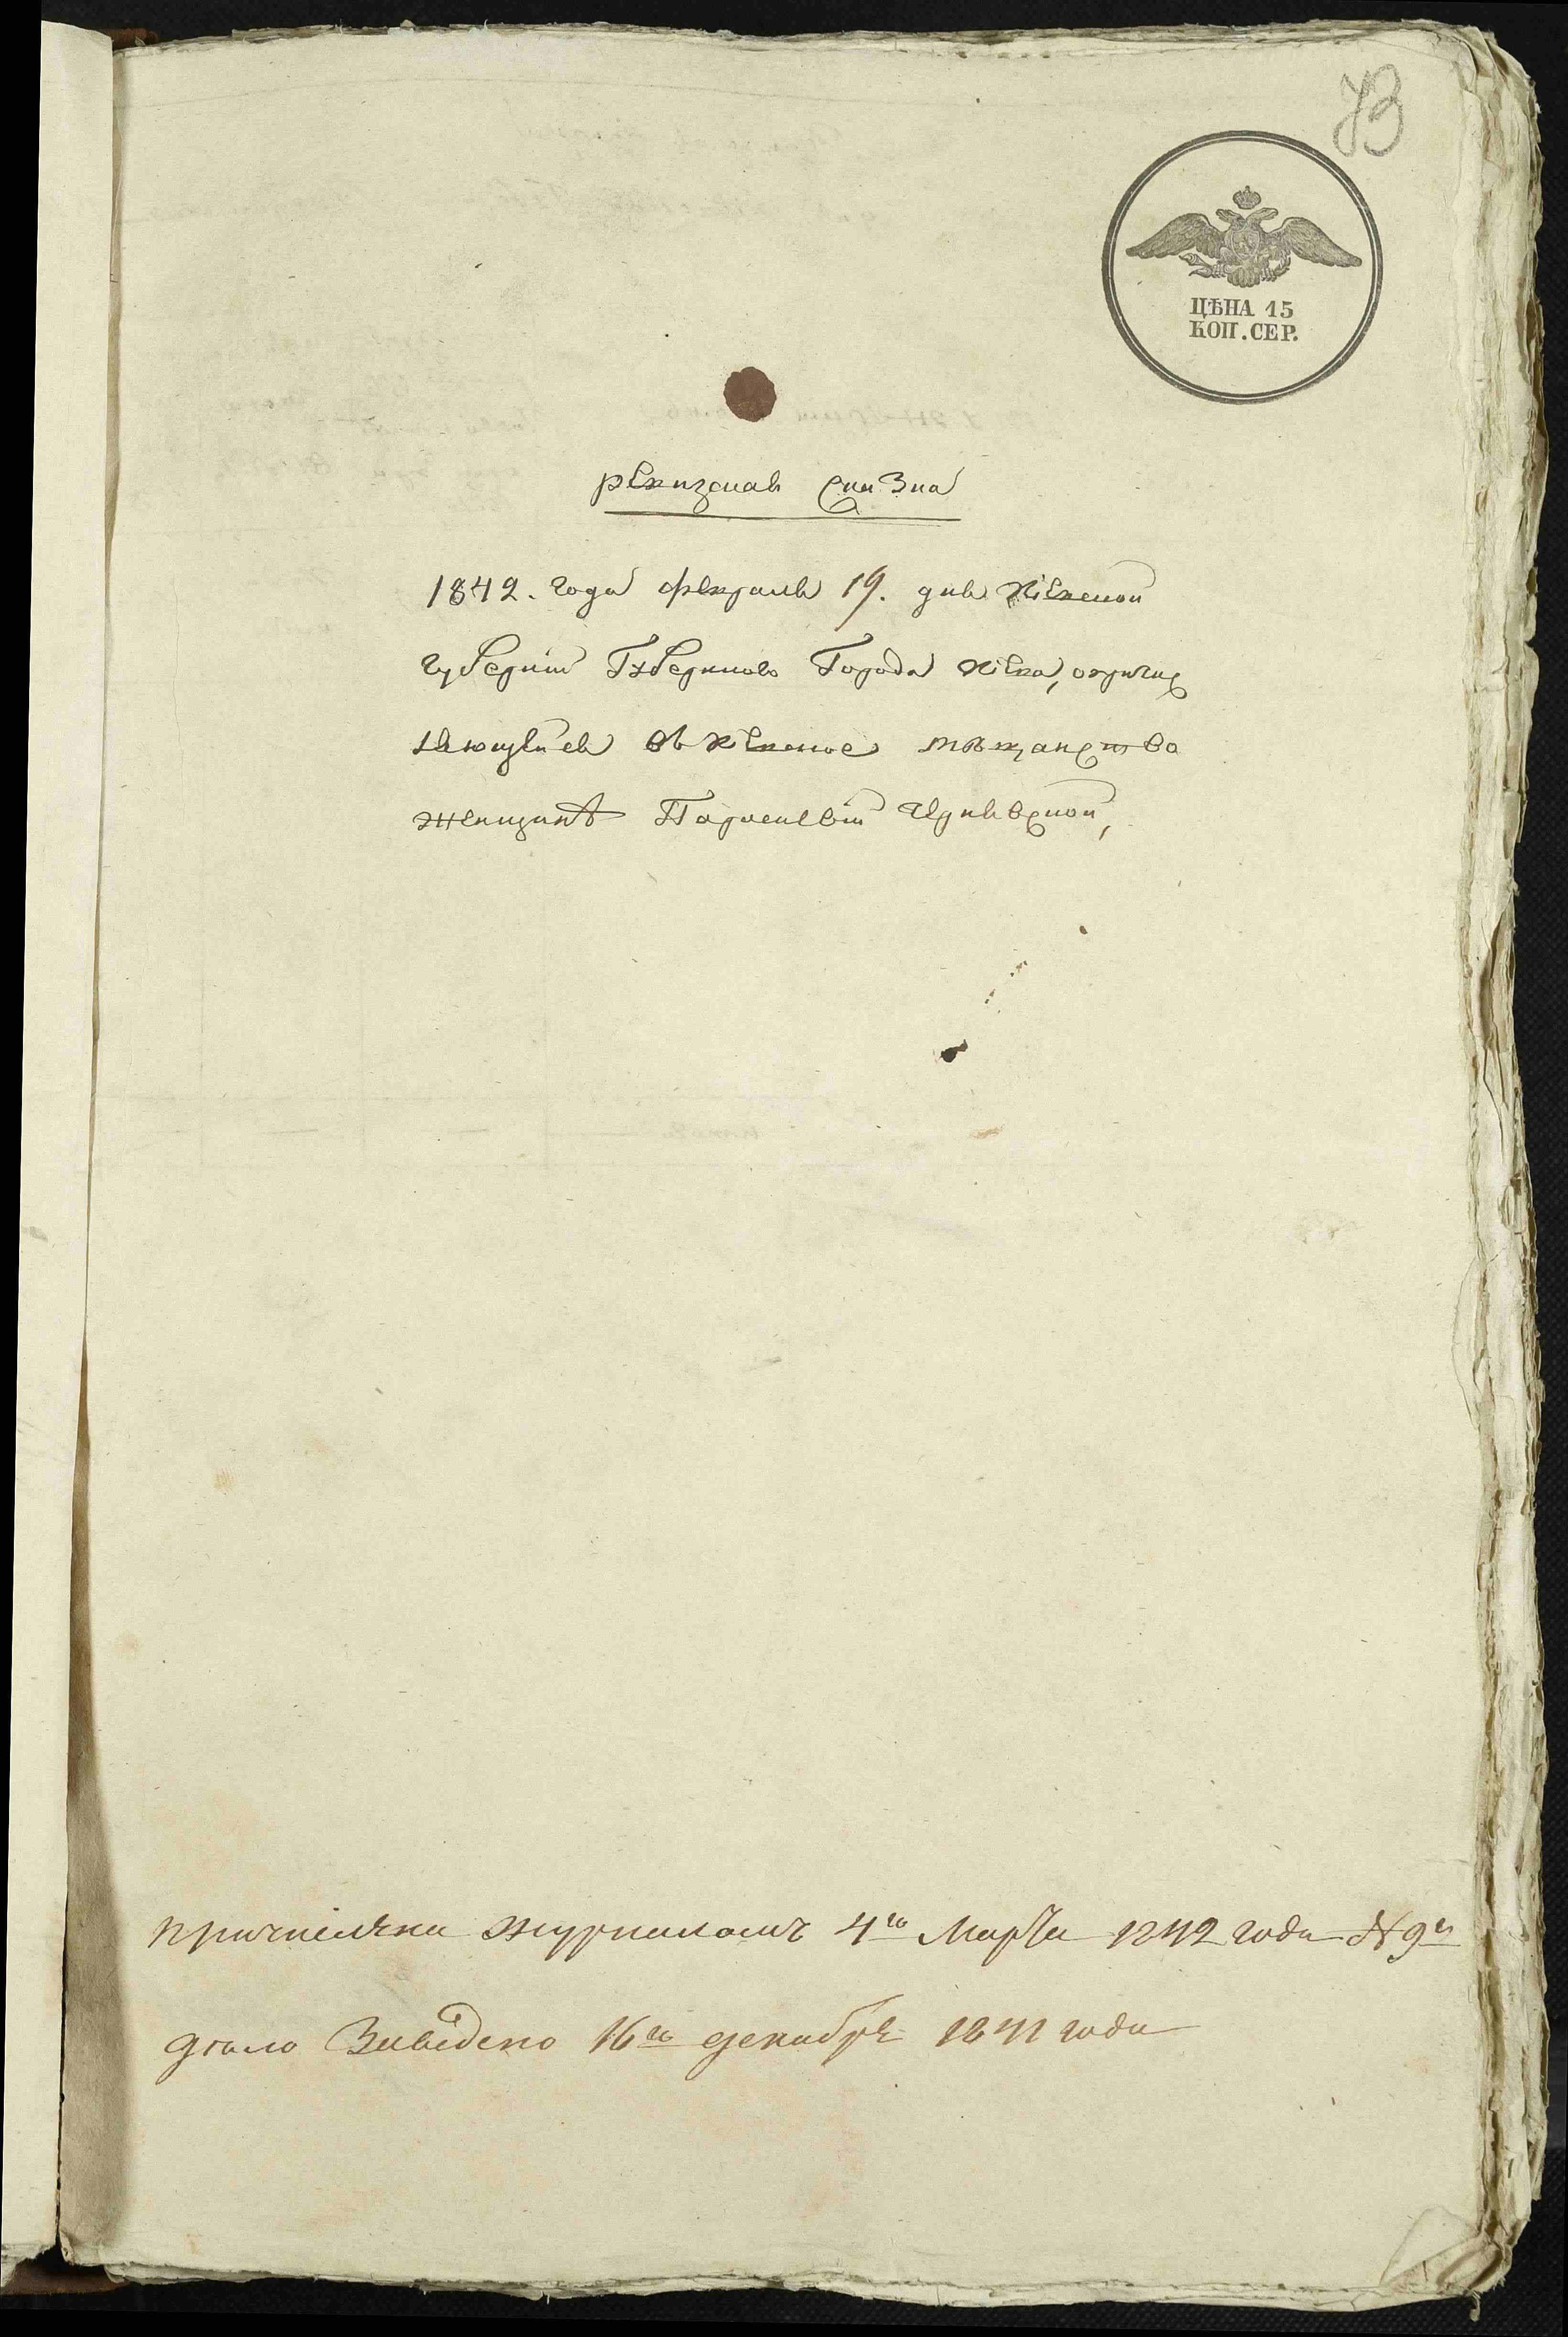 73
ЦѢНА 15
КОП. СЕР.
ревизская сказка
1842. года февраля 19. дня Кіевской
губерніи Губернского Города Кіева,
въ Кіевское мѣщанство
женщинѣ Чернявской,
причислена журналомъ 4го Марта 1842 года № 9й
дѣло Заведено 16го декабря 1841 года